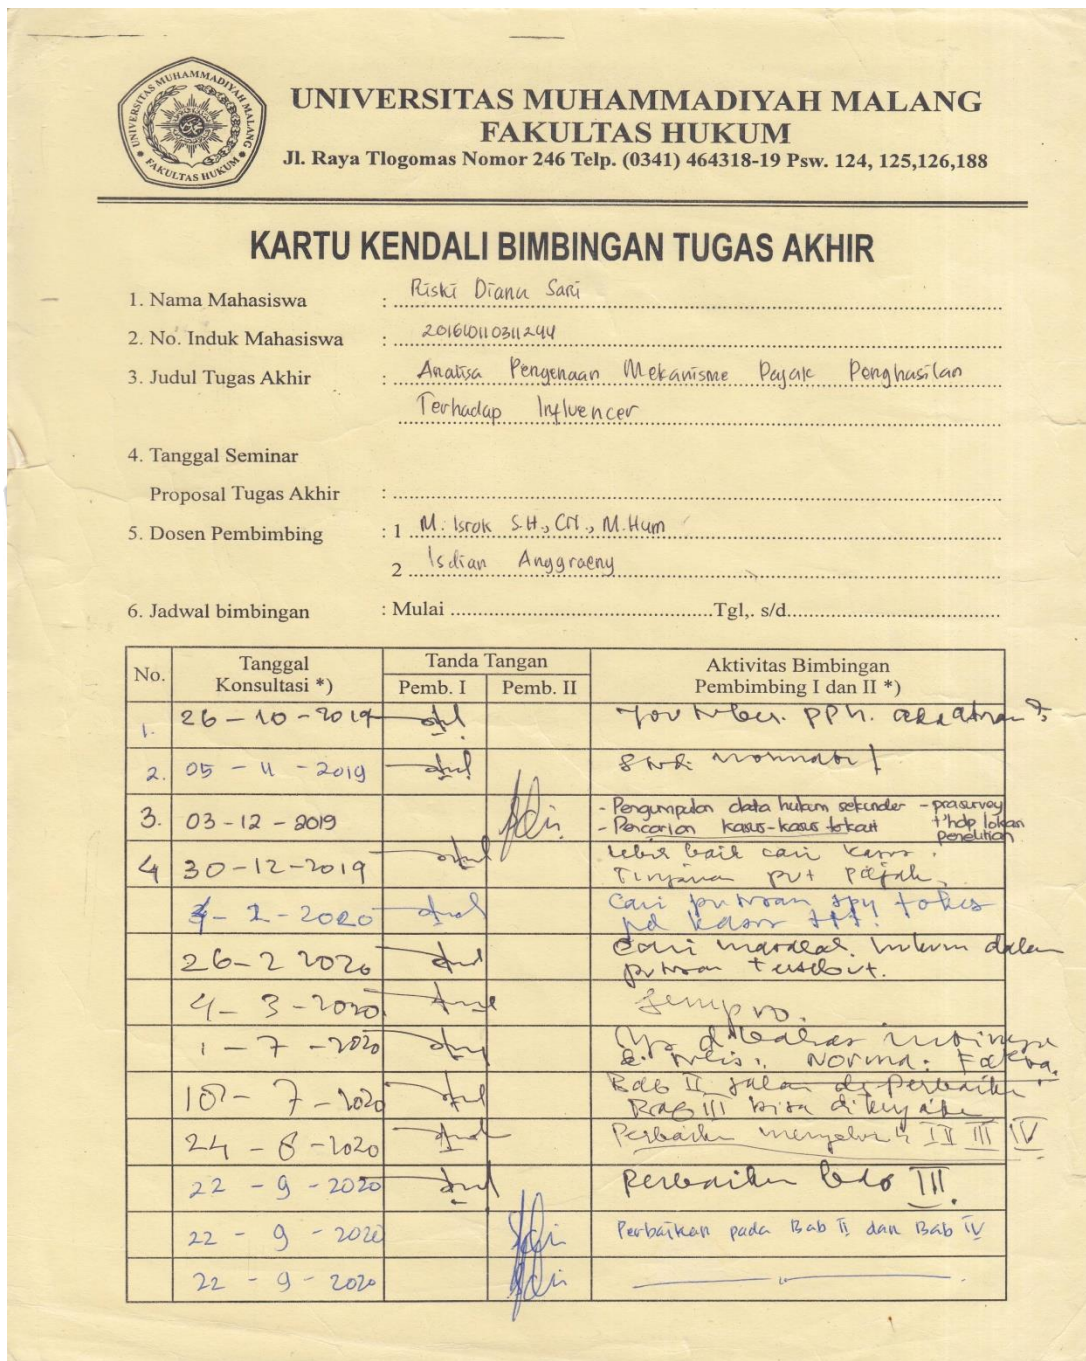 UNIVERSITAS MUHAMMADIYAH MALANG
FAKULTAS HUKUM
UNIVERSITAS MUHAMMADIYAH MALANG
FAKULTAS HUKUM
Jl. Raya Tlogomas Nomor 246 Telp. (0341) 464318-19 Psw. 124, 125,126,188
KARTU KENDALI BIMBINGAN TUGAS AKHIR
1. Nama Mahasiswa : Riski Diana Sari
2. No. Induk Mahasiswa : 201610110311244
3. Judul Tugas Akhir : Analisa Pengenaan Mekanisme Pajak Penghasilan
Terhadap Influencer
4. Tanggal Seminar
Proposal Tugas Akhir :
5. Dosen Pembimbing : 1 M. Isrok S.H., CN., M.Hum
2 Isdian Anggraeny
6. Jadwal bimbingan : Mulai Tgl,. s/d
No. Tanggal Konsultasi *) Tanda Tangan Aktivitas Bimbingan Pembimbing I dan II *)
Pemb. I Pemb. II
1. 26 - 10 - 2019 PPh.
2. 05 - 11 - 2019
3. 03 - 12 - 2019 - Pengumpulan data hukum sekunder - prasurvey
- Pencarian kasus-kasus terkait t'hdp lokasi
penelitian
4 30 - 12 - 2019 lebih baik cari kasus.
Tinjauan put pajak.
2 - 2020 Cari putusan spy fokus
pd kasus
26 - 2 2020 Cari masalah hukum dalam
putusan tersebut.
4 - 3 - 2020 Sempro.
1 - 7 - 2020 Norma: Fakta.
10 - 7 - 2020 Bab II
Bab III bisa
24 - 8 - 2020 Perbaiki II III IV
22 - 9 - 2020 Perbaiki bab III.
22 - 9 - 2020 Perbaikan pada Bab II dan Bab IV
22 - 9 - 2020